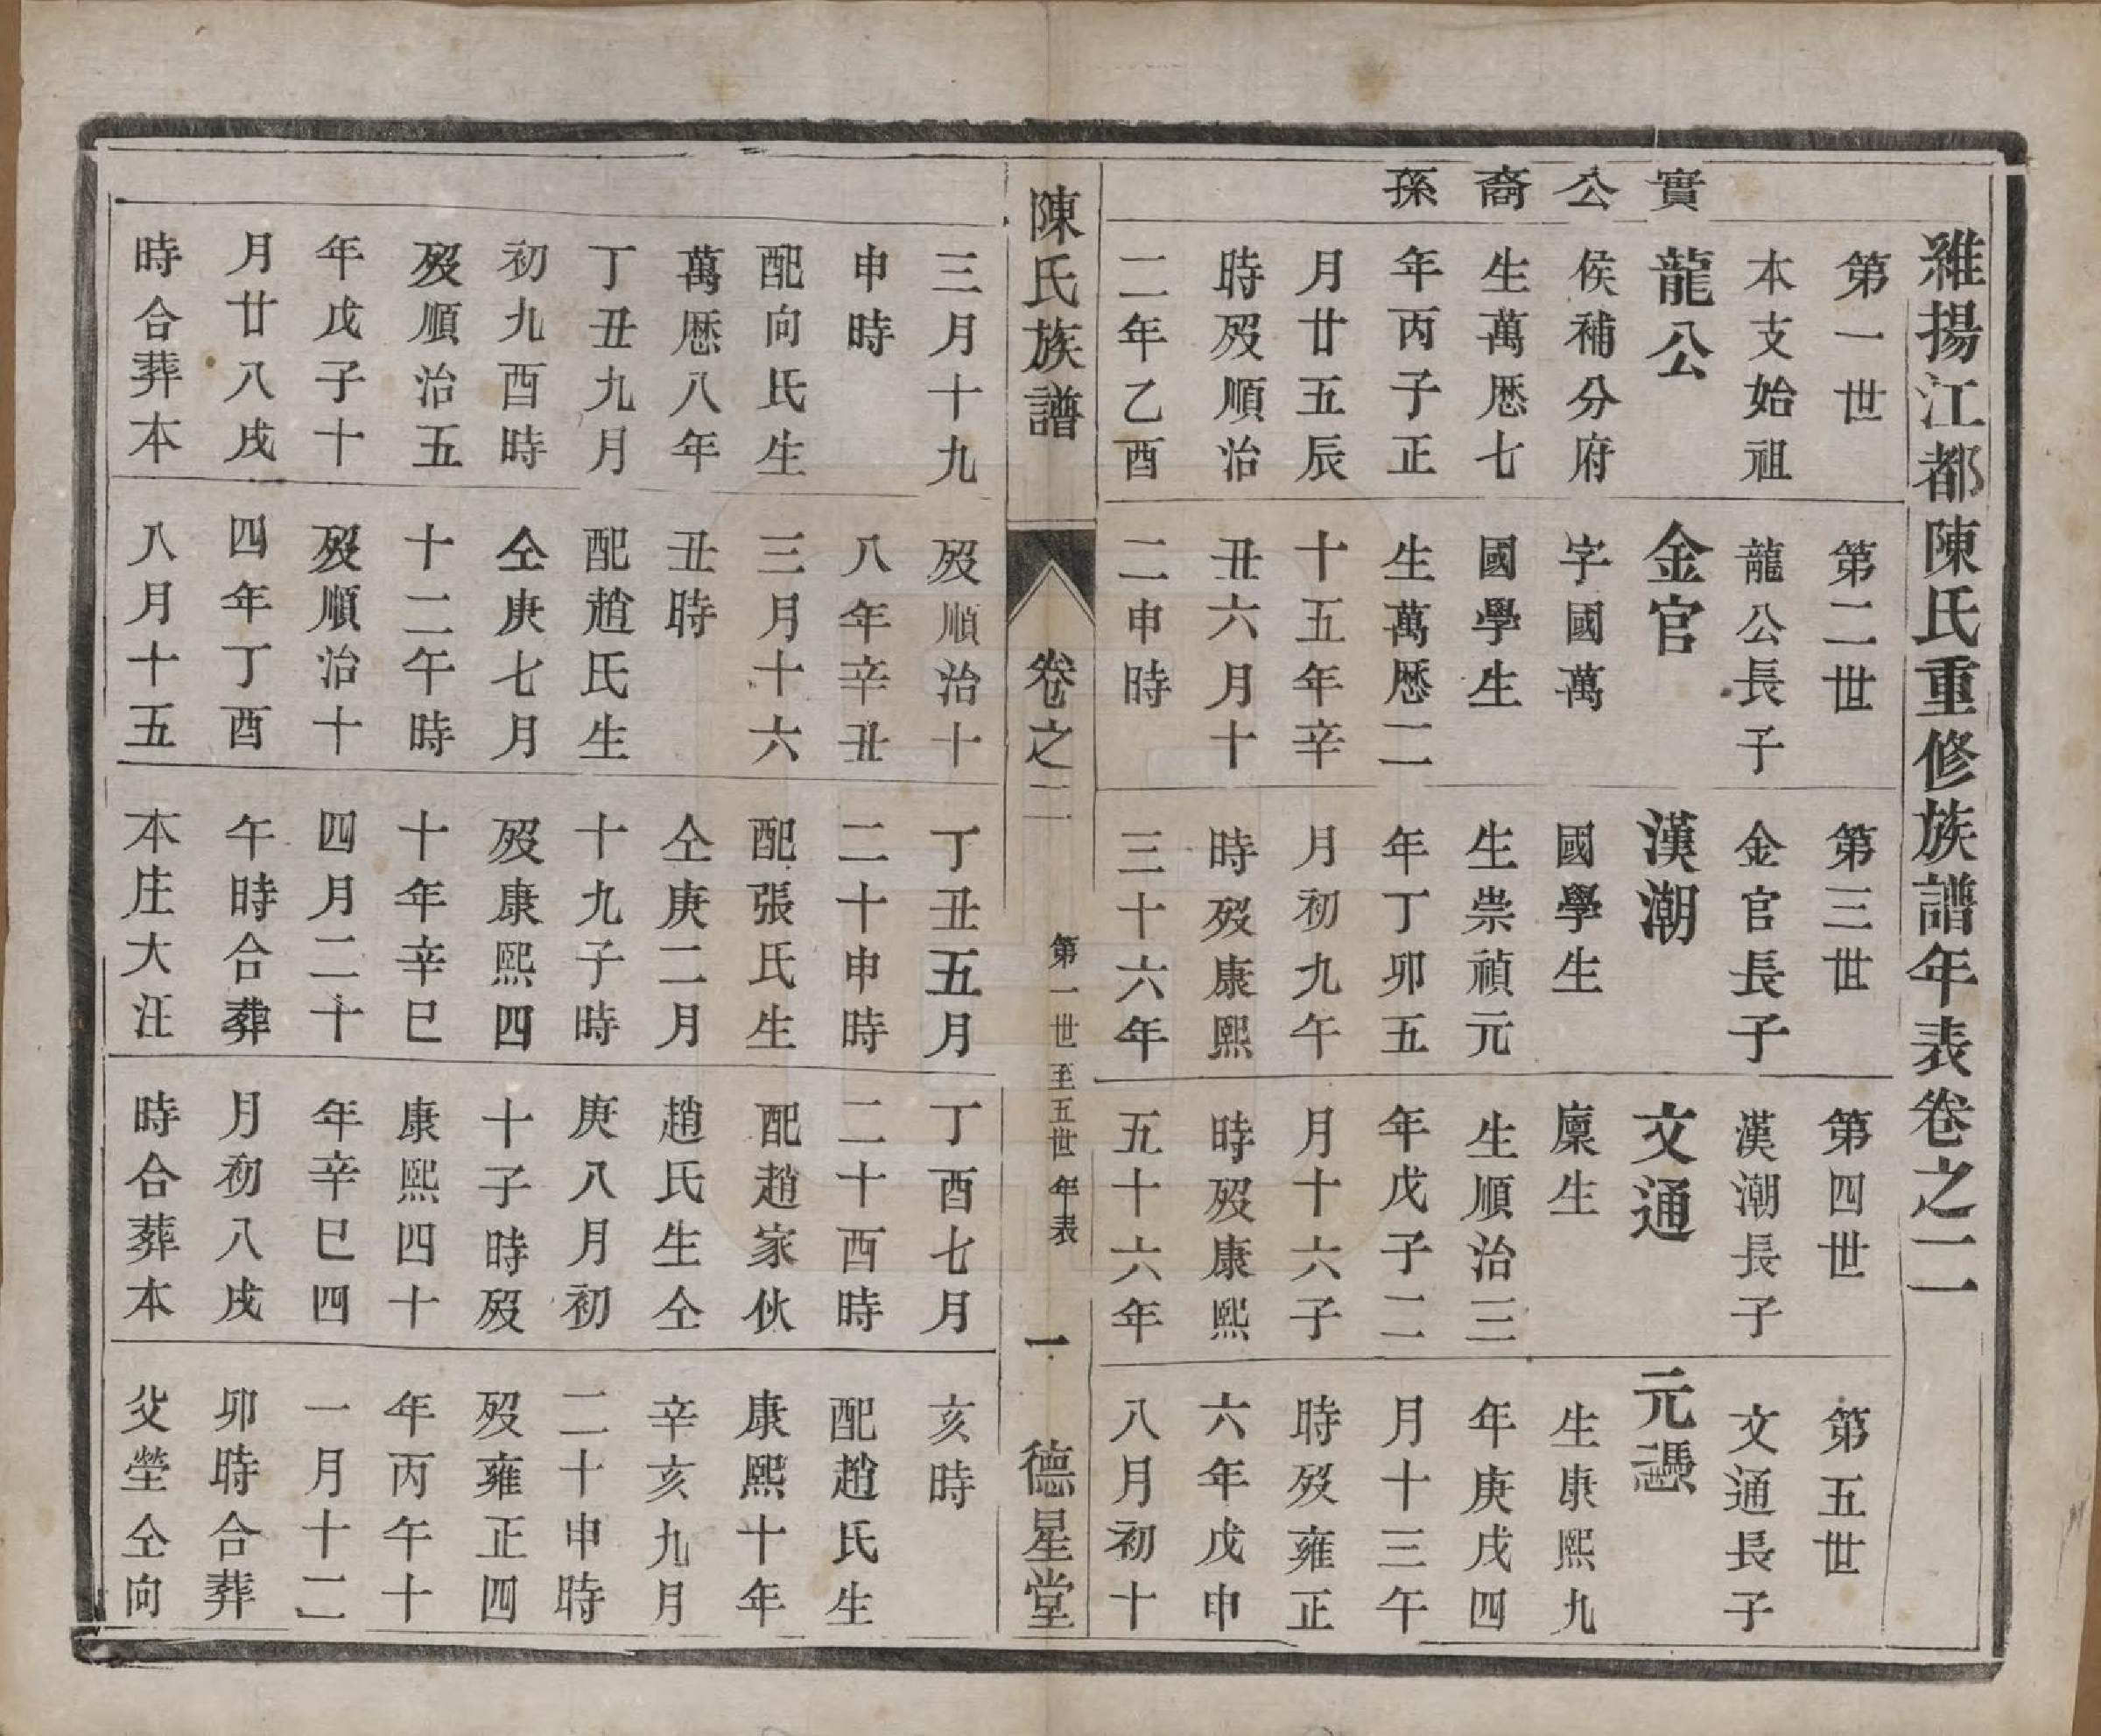 雒揚江都陳氏重修族譜年表卷之二
實公裔孫
第一世
本支始祖
龍公
侯補分府
生萬厯七
年丙子正
月廿五辰
時歿順治
二年乙酉
三月十九
申時
配向氏生
萬厯八年
丁丑九月
初九酉時
歿順治五
年戊子十
月廿八戌
時合葬本
第二世
龍公長子
金官
字國萬
國學生
生萬厯二
十五年辛
丑六月十
二申時
歿順治十
八年辛丑
三月十六
丑時
配趙氏生
仝庚七月
十二午時
歿順治十
四年丁酉
八月十五
第三世
金官長子
漢潮
國學生
生崇禎元
年丁卯五
月初九午
時歿康熙
三十六年
丁丑五月
二十申時
配張氏生
仝庚二月
十九子時
歿康熙四
十年辛巳
四月二十
午時合葬
本庄大汪
第四世
漢潮長子
文通
廩生
生順治三
年戊子二
月十六子
時歿康熙
五十六年
丁酉七月
二十酉時
配趙家伙
趙氏生仝
庚八月初
十子時歿
康熙四十
年辛巳四
月初八戌
時合葬本
第五世
文通長子
元憑
生康熙九
年庚戌四
月十三午
時歿雍正
六年戊申
八月初十
亥時
配趙氏生
康熙十年
辛亥九月
二十申時
歿雍正四
年丙午十
一月十二
卯時合葬
父塋仝向
陳氏族譜
卷之二
第一世至五世年表
一
德星堂